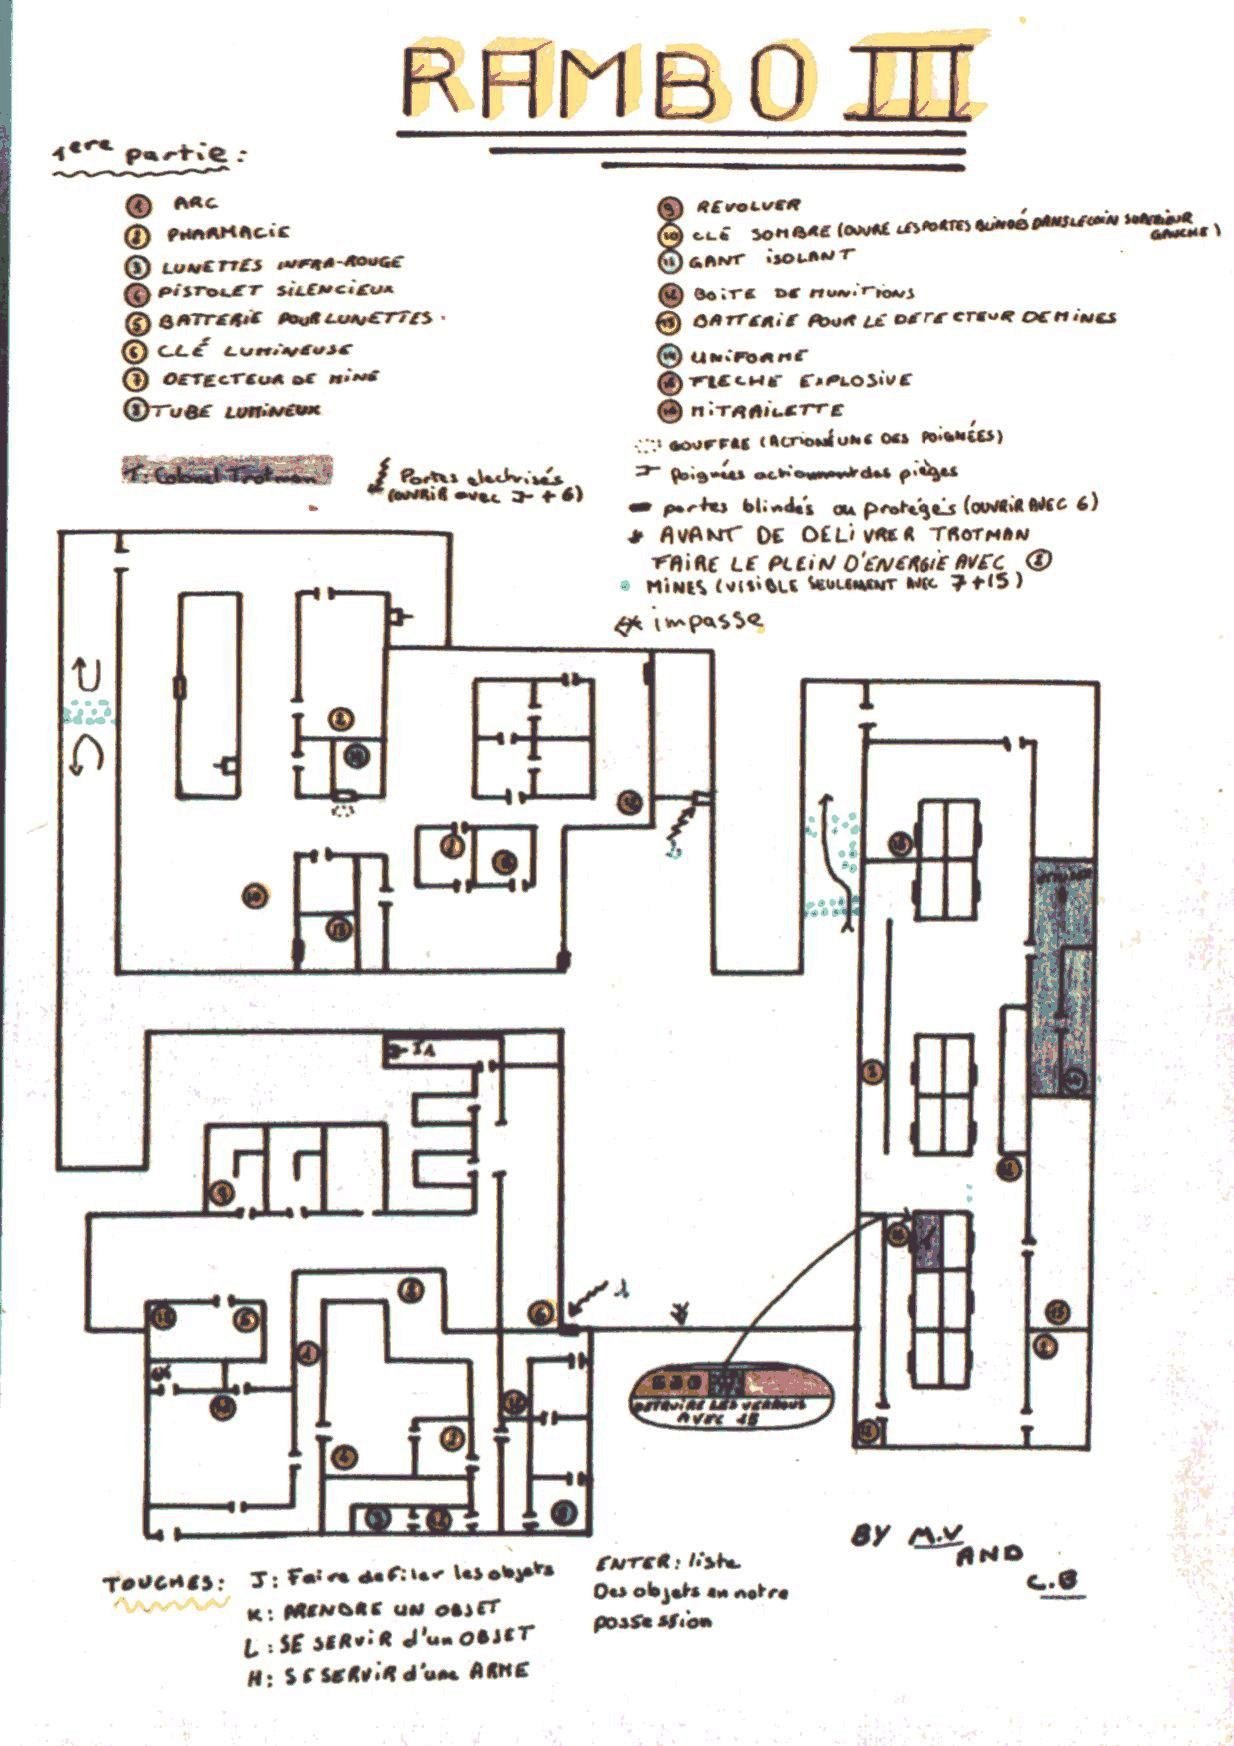 RAMBO III
1ere partie:
1 ARC
2 PHARMACIE
3 LUNETTES INFRA-ROUGE
4 PISTOLET SILENCIEUX
5 BATTERIE POUR LUNETTES.
6 CLÉ LUMINEUSE
7 DETECTEUR DE MINE
8 TUBE LUMINEUX
T: Colonel Trotman
Portes electrisés
(OUVRIR avec J + 6)
9 REVOLVER
10 CLÉ SOMBRE (OUVRE LES PORTES BLINDÉS DANS LE COIN SUPERIEUR
GAUCHE)
11 GANT ISOLANT
12 BOITE DE MUNITIONS
13 BATTERIE POUR LE DETECTEUR DE MINES
14 UNIFORME
15 FLECHE EXPLOSIVE
16 MITRAILETTE
GOUFFRE (ACTIONÉ UNE DES POIGNÉES)
Poignées actionnant des pièges
portes blindés ou protégés (OUVRIR AVEC 6)
AVANT DE DELIVRER TROTMAN
FAIRE LE PLEIN D'ENERGIE AVEC 2
MINES (VISIBLE SEULEMENT AVEC 7+15)
impasse
DETRUIRE LES VERROUS
AVEC 15
BY M.V
AND
C.B
TOUCHES:
J: Faire defiler les objets
K: PRENDRE UN OBJET
L: SE SERVIR d'un OBJET
H: SE SERVIR d'une ARME
ENTER: liste
Des objets en notre
possession